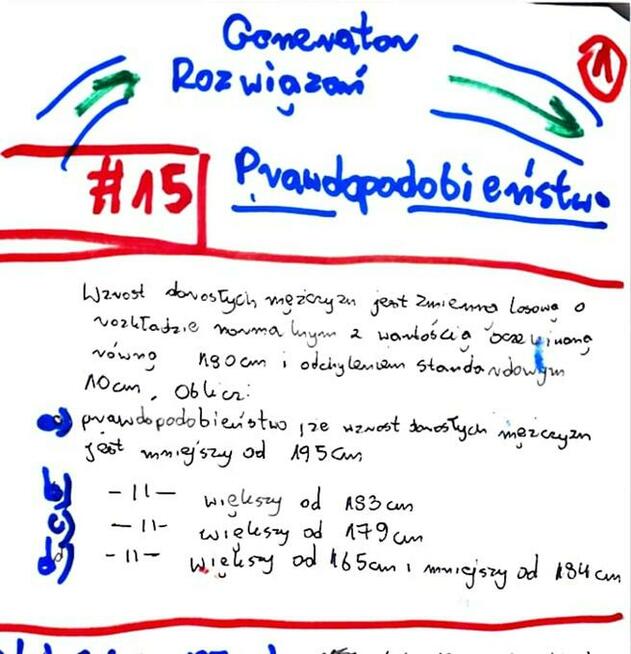 Generator
Rozwiązań
1
#15
Prawdopodobieństwo
Wzrost dorosłych mężczyzn jest zmienną losową o
rozkładzie normalnym z wartością oczekiwaną
równą 180cm i odchyleniem standardowym
10cm. Oblicz:
a) prawdopodobieństwo że wzrost dorosłych mężczyzn
jest mniejszy od 195cm
b) -||- większy od 183cm
c) -||- większy od 179cm
d) -||- większy od 165cm i mniejszy od 184cm